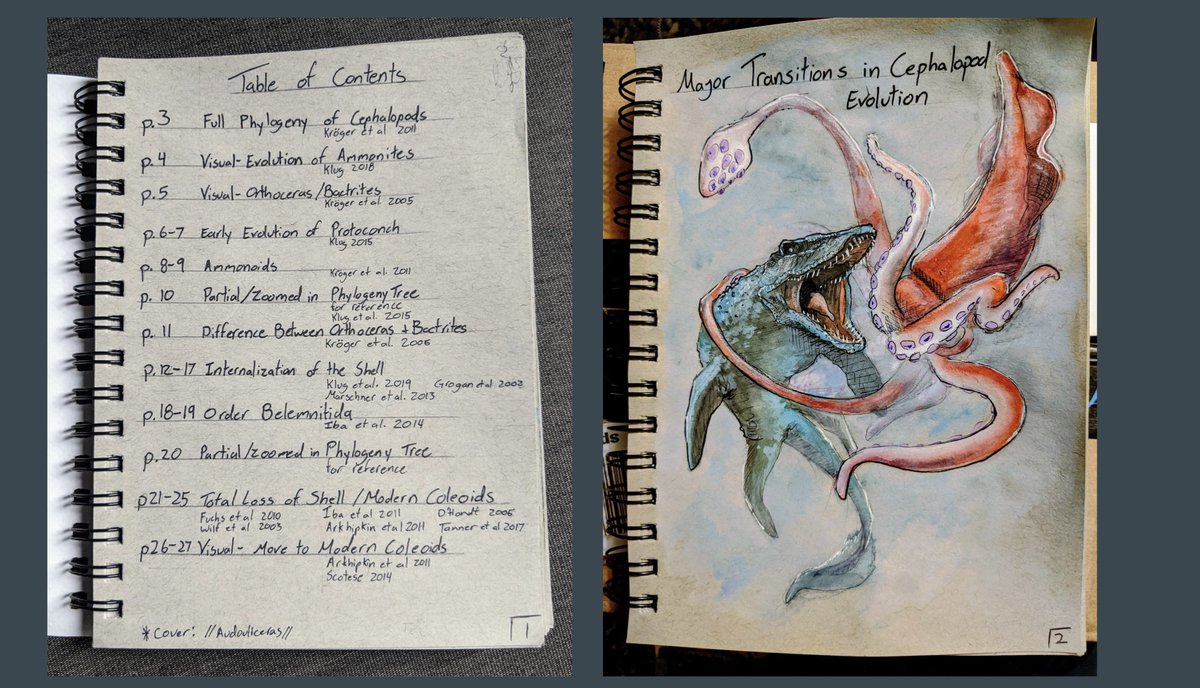 Table of Contents
p.3 Full Phylogeny of Cephalopods
Kröger et al 2011
p.4 Visual-Evolution of Ammonites
Klug 2018
p.5 Visual-Orthoceras/Bactrites
Kröger et al. 2005
p.6-7 Early Evolution of Protoconch
Klug 2015
p.8-9 Ammonoids
Kröger et al. 2011
p.10 Partial/Zoomed in Phylogeny Tree
for reference
Klug et al. 2015
p.11 Difference Between Orthoceras + Bactrites
Kröger et al. 2005
p.12-17 Internalization of the Shell
Klug et al. 2019 Grogan et al 2003
Marschner et al. 2013
p.18-19 Order Belemnitida
Iba et al. 2014
p.20 Partial/Zoomed in Phylogeny Tree
for reference
p21-25 Total Loss of Shell/Modern Coleoids
Fuchs et al 2010 Iba et al 2011 D'Hondt 2005
Wilf et al 2003 Arkhipkin et al 2011 Tanner et al 2017
p26-27 Visual- Move to Modern Coleoids
Arkhipkin et al 2011
Scotese 2014
*Cover: //Audouliceras//
1
Major Transitions in Cephalopod
Evolution
2